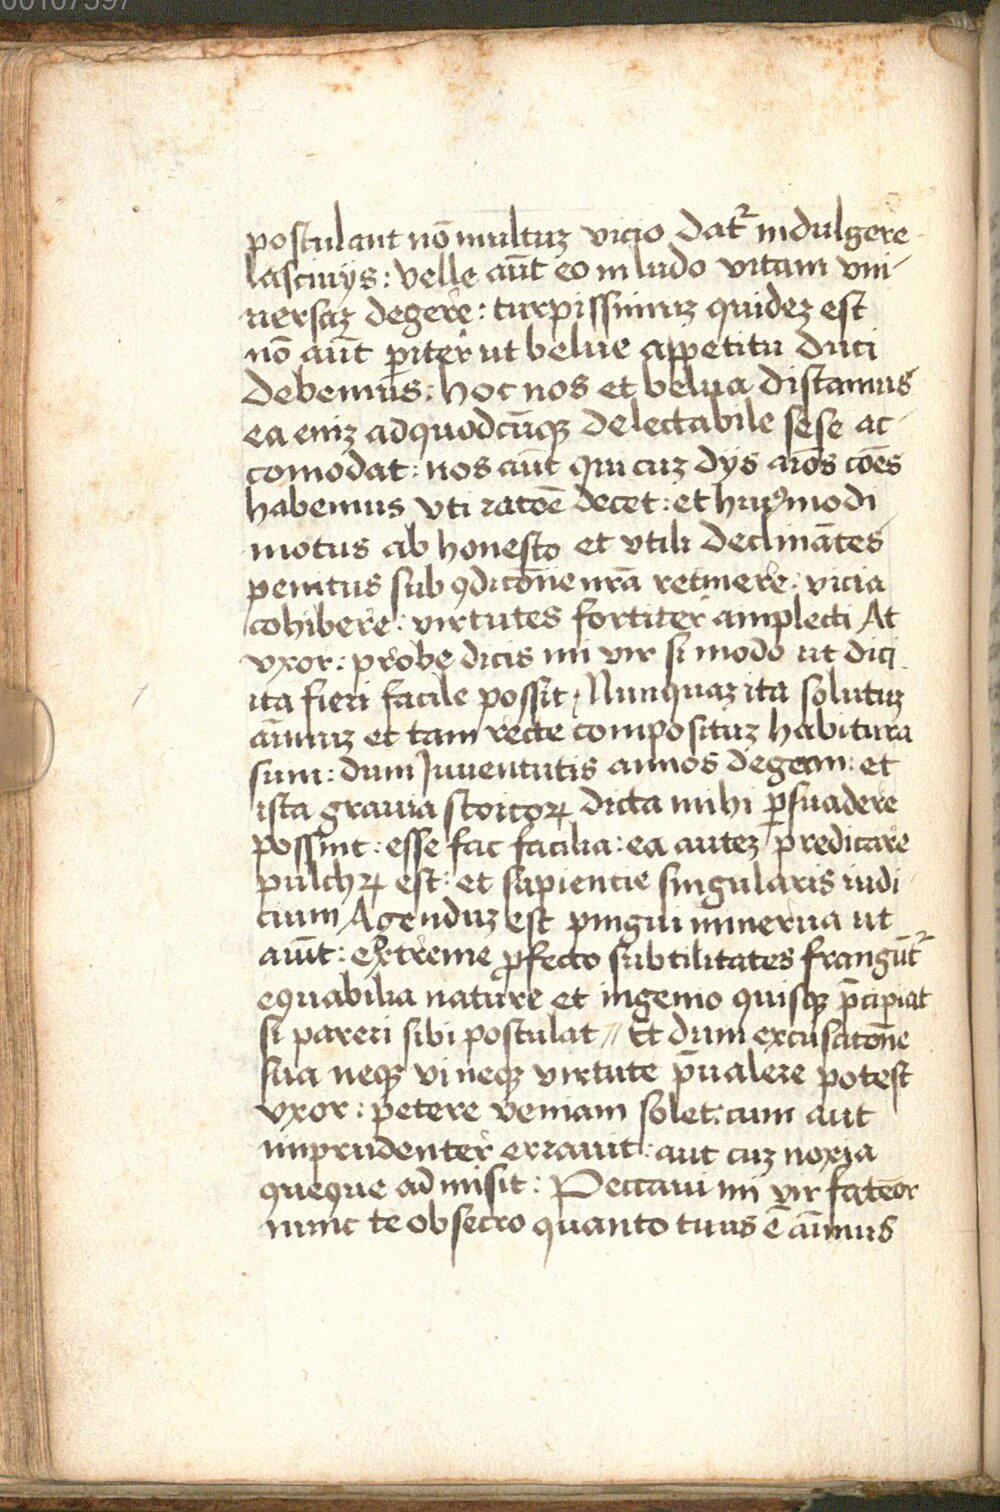 00107397
postulant nō multuz vicio datr̄ indulgere
lasciuijs : velle aūt eo in ludo vitam vni-
uersaz degere : turpissimuz quidez est
nō aūt pariter ut belue appetitu duci
debemus : hoc nos et belua distamus
ea eniz ad quodcūqꝫ delectabile sese ac-
comodat : nos aūt qui cuz dijs aiōs cōes
habemus vti ratōe decet : et huiꝰmodi
motus ab honesto et vtili declināntes
penitus sub ꝯditōne nrā retinere : vicia
cohibere : virtutes fortiter amplecti At
vxor : probe dicis mi vir si modo ut dici
ita fieri facile possit / Nunquaz ita solutuz
aīmuz et tam recte composituz habitura
sum : dum Juuentutis annos degam : et
ista grauia stoicoꝝ dicta mihi ꝑsuadere
possint : esse fac facilia : ea autez predicare
pulchꝝ est : et sapiencie singularis iudi-
cium Agenduz est pingui minerua ut
aiūt : extreme ꝓfecto subtilitates frangūtr̄
equabilia nature et ingenio quisqꝫ p̄cipiat
si pareri sibi postulat // Et dum excusatōne
sua neqꝫ vi neqꝫ virtute p̄ualere potest
vxor : petere veniam solet : cum aut
imprudenter errauit : aut cuz noxia
queque admisit : Peccaui mi vir fateor
nunc te obsecro quanto tuus ē aīmus